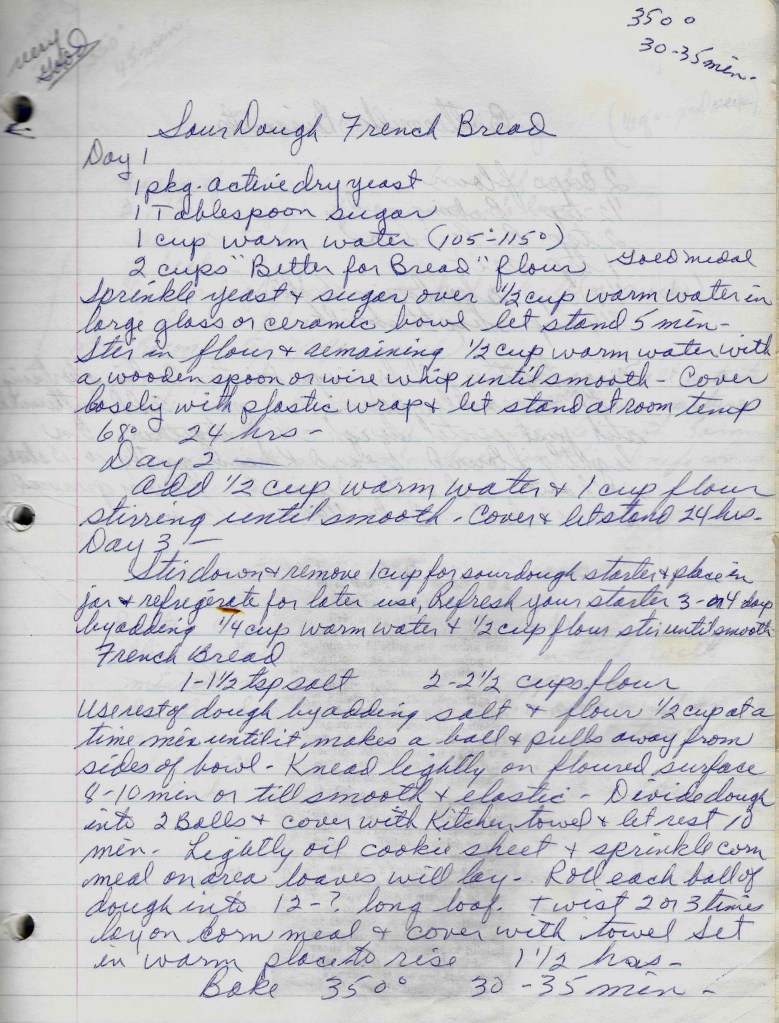 very
Good
350°
45 min.
3500
30-35 min.
Sour Dough French Bread
Day 1
1 pkg. active dry yeast
1 Tablespoon sugar
1 cup warm water (105°-115°)
2 cups "Better for Bread" flour Gold medal
Sprinkle yeast & sugar over 1/2 cup warm water in
large glass or ceramic bowl let stand 5 min-
Ster in flour & remaining 1/2 cup warm water with
a wooden spoon or wire whip until smooth - Cover
loosely with plastic wrap & let stand at room temp
68° 24 hrs-
Day 2 —
add 1/2 cup warm water & 1 cup flour
stirring until smooth - Cover & let stand 24 hrs.
Day 3 —
Stir down & remove 1 cup for sourdough starter & place in
jar & refregerate for later use, Refresh your starter 3- or 4 days
by adding 1/4 cup warm water & 1/2 cup flour stir until smooth-
French Bread
1-1 1/2 tsp salt 2-2 1/2 cups flour
Use rest of dough by adding salt & flour 1/2 cup at a
time mix until it makes a ball & pulls away from
sides of bowl - Knead lightly on floured surface
8-10 min or till smooth & elastic - Devide dough
into 2 Balls & cover with Kitchen towel & let rest 10
min- Lightly oil cookie sheet & sprinkle corn
meal on area loaves will lay- Roll each ball of
dough into 12-? long loaf. + twist 2 or 3 times
lay on corn meal & cover with towel Set
in warm place to rise 1 1/2 hrs-
Bake 350° 30-35 min-